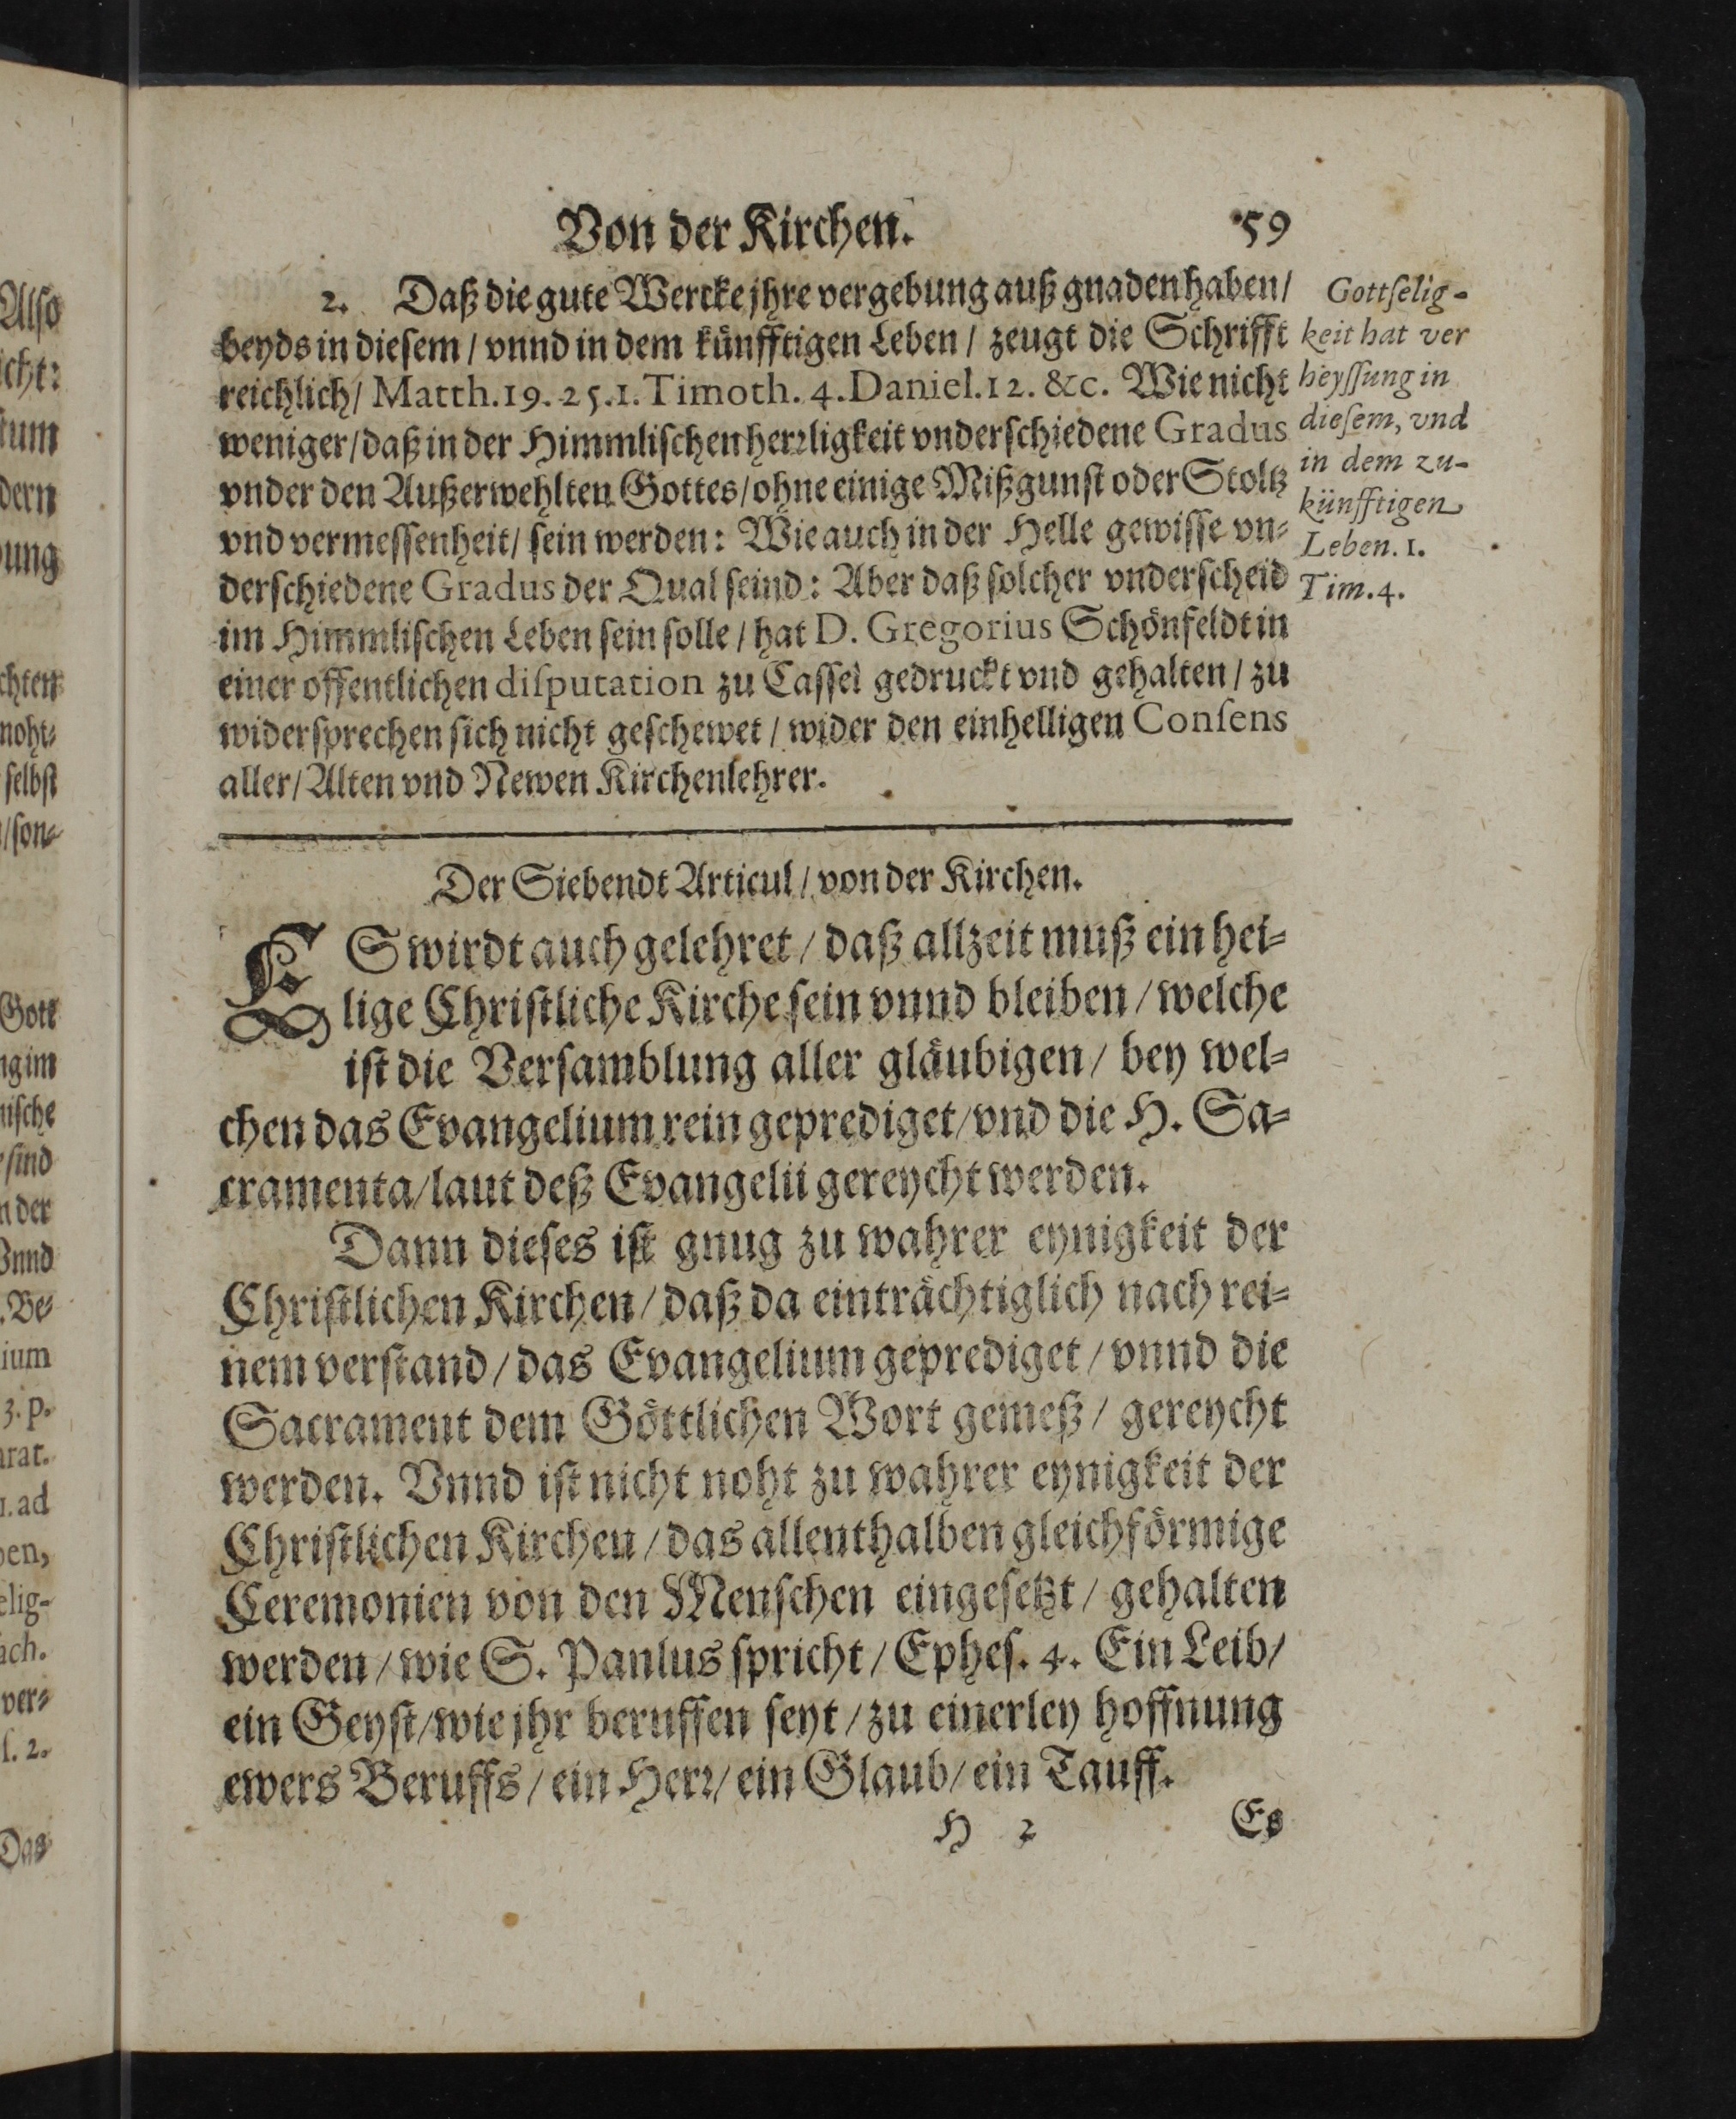 Von der Kirchen. 59
2. Daß die gute Wercke jhre vergebung auß gnaden haben/
beyds in diesem/ vnnd in dem künfftigen Leben/ zeugt die Schrifft
reichlich/ Matth. 19. 25. 1. Timoth. 4. Daniel. 12. &c. Wie nicht
weniger/ daß in der Himmlischen herꝛligkeit vnderschiedene Gradus
vnder den Außerwehlten Gottes/ ohne einige Mißgunst oder Stoltz
vnd vermessenheit/ sein werden: Wie auch in der Helle gewisse vn-
derschiedene Gradus der Qual seind: Aber daß solcher vnderscheid
im Himmlischen Leben sein solle/ hat D. Gregorius Schönfeldt in
einer offentlichen disputation zu Cassel gedruckt vnd gehalten/ zu
widersprechen sich nicht geschewet/ wider den einhelligen Consens
aller/ Alten vnd Newen Kirchenlehrer.
Gottselig-
keit hat ver
heyssung in
diesem, vnd
in dem zu-
künfftigen
Leben. 1.
Tim. 4.
Der Siebendt Articul/ von der Kirchen.
ES wirdt auch gelehret/ daß allzeit muß ein hei-
lige Christliche Kirche sein vnnd bleiben/ welche
ist die Versamblung aller gläubigen/ bey wel-
chen das Evangelium rein geprediget/ vnd die H. Sa-
cramenta/ laut deß Evangelii gereycht werden.
Dann dieses ist gnug zu wahrer eynigkeit der
Christlichen Kirchen/ daß da einträchtiglich nach rei-
nem verstand/ das Evangelium geprediget/ vnnd die
Sacrament dem Göttlichen Wort gemeß/ gereycht
werden. Vnnd ist nicht noht zu wahrer eynigkeit der
Christlichen Kirchen/ das allenthalben gleichförmige
Ceremonien von den Menschen eingesetzt/ gehalten
werden/ wie S. Panlus spricht/ Ephes. 4. Ein Leib/
ein Geyst/ wie jhr beruffen seyt/ zu einerley hoffnung
ewers Beruffs/ ein Herꝛ/ ein Glaub/ ein Tauff.
H 2 Es